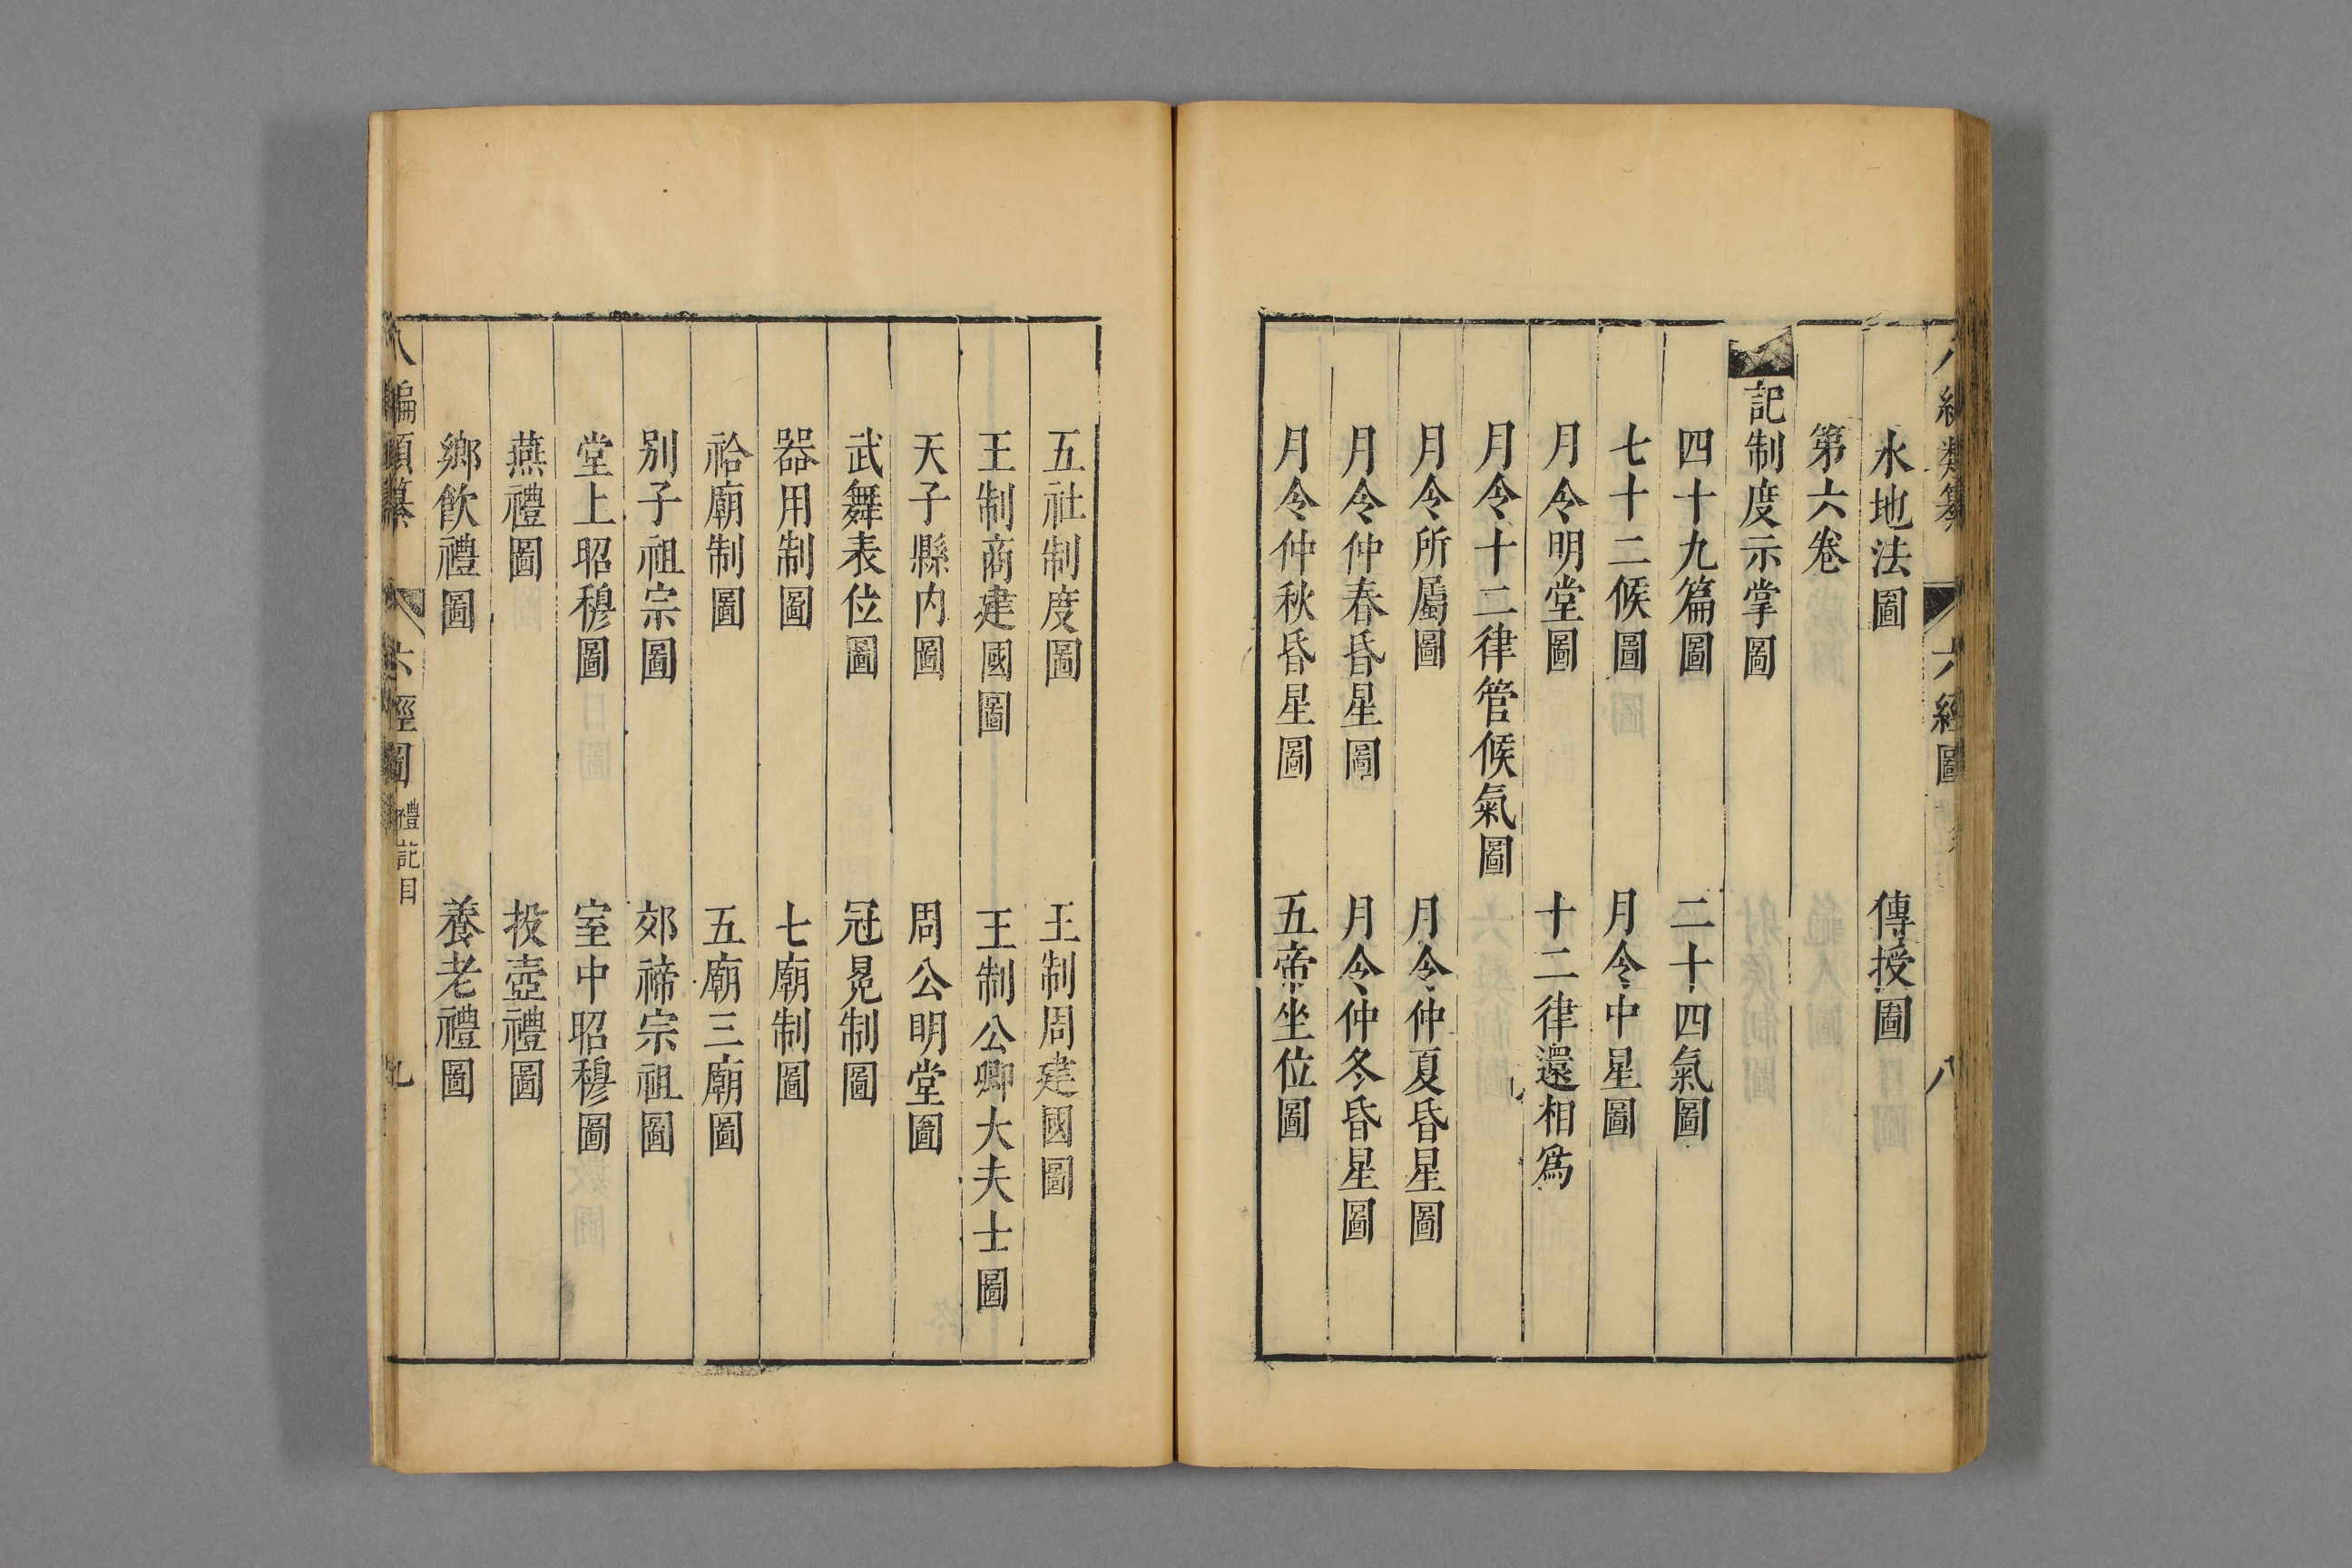 水地法圖　傳授圖
第六卷
記制度示掌圖
四十九篇圖　二十四氣圖
七十二候圖　月令中星圖
月令明堂圖　十二律還相爲
月令十二律管候氣圖
月令所屬圖　月令仲夏昏星圖
月令仲春昏星圖　月令仲冬昏星圖
月令仲秋昏星圖　五帝坐位圖
五社制度圖　王制周建國圖
王制商建國圖　王制公卿大夫士圖
天子縣內圖　周公明堂圖
武舞表位圖　冠冕制圖
器用制圖　七廟制圖
祫廟制圖　五廟三廟圖
別子祖宗圖　郊禘宗祖圖
堂上昭穆圖　室中昭穆圖
燕禮圖　投壺禮圖
鄉飲禮圖　養老禮圖
八編類纂　六經圖　禮記目　九